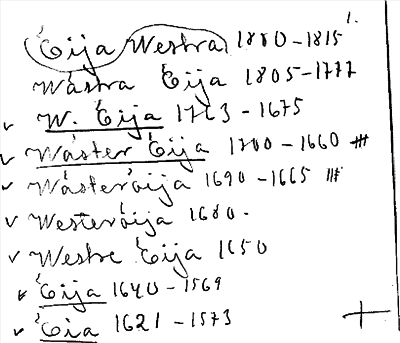 1.
Éija Westra 1880-1815
Wástra Éija 1805-1777
W. Éija 1763-1675
Wáster Éija 1700-1660 #
Wásteróija 1690-1665 #
Westeróija 1680.
Westre Éija 1650
Éija 1640-1569
Éia 1621-1573